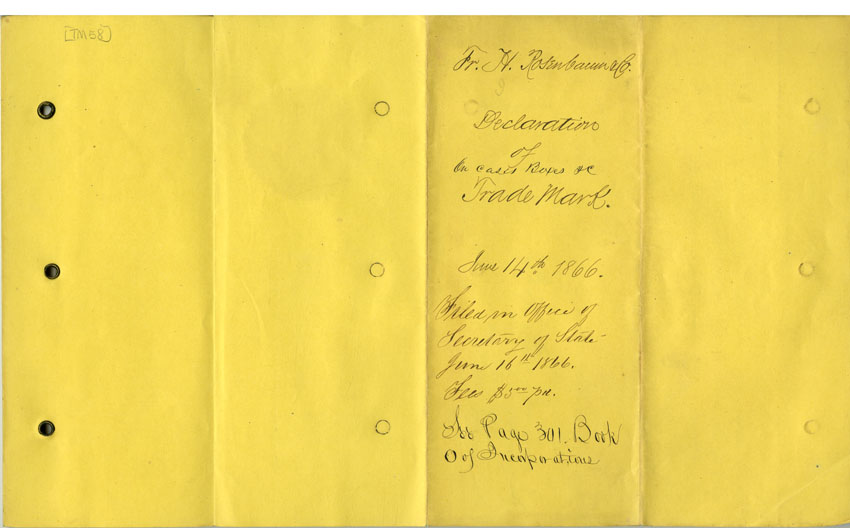 [TM58]
Fr. H. Rosenbaum & Co.
Declaration
of
On cases Boxes &c
Trade Mark.
June 14th 1866.
Filed in Office of
Secretary of State
June 16th 1866.
Fees $5.00 pd.
See Page 301. Book
O of Incorporations